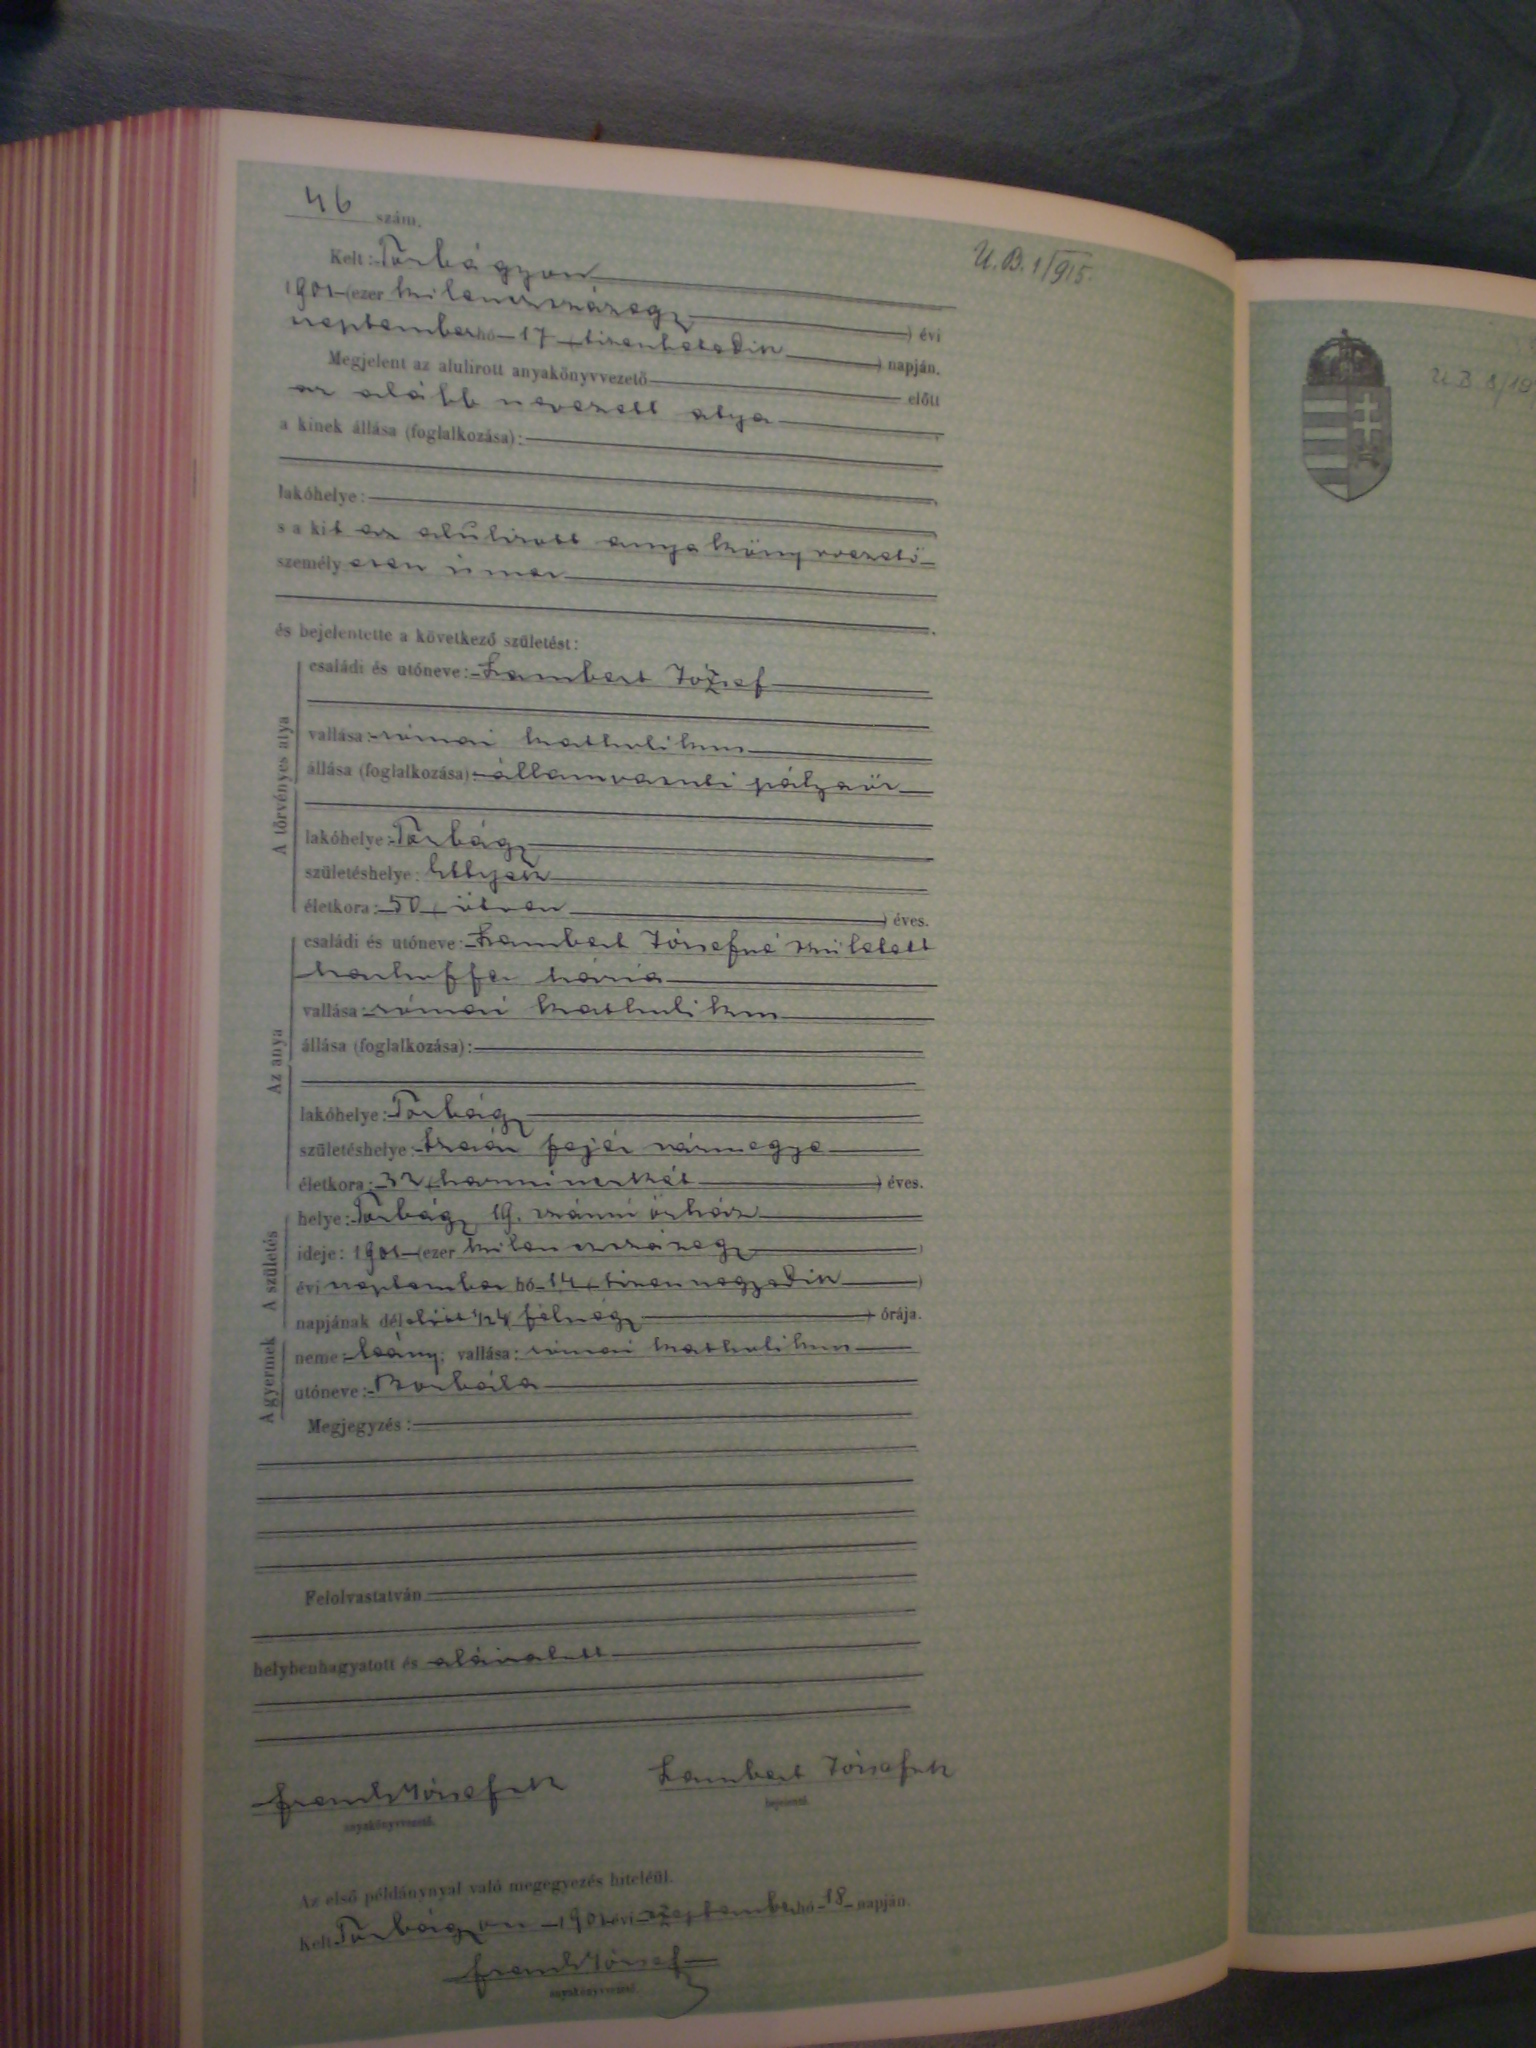 46 szám.
U. B. 1/915.
Kelt: Torbágyon
1901 (ezer kilenczszázegy) évi
szeptember hó 17 (tizenhetedik) napján.
Megjelent az alulirott anyakönyvvezető előtt
az alább nevezett atya
a kinek állása (foglalkozása):
lakóhelye:
s a kit az alulirott anyakönyvvezető
személyesen ismer
és bejelentette a következő születést:
A törvényes atya
családi és utóneve: Lambert József
vallása: római katholikus
állása (foglalkozása): államvasuti pályaőr
lakóhelye: Torbágy
születéshelye: Ettyek
életkora: 50 (ötven) éves.
Az anya
családi és utóneve: Lambert Józsefné született
Mária
vallása: római katholikus
állása (foglalkozása):
lakóhelye: Torbágy
születéshelye: fejér vármegye
életkora: 32 (harminczkét) éves.
A születés
helye: Torbágy 19. számú őrház
ideje: 1901 (ezer kilenczszázegy)
évi szeptember hó 14 (tizennegyedik)
napjának délelőtt 1/24 félnégy órája.
A gyermek
neme: leány; vallása: római katholikus
utóneve: Borbála
Megjegyzés:
Felolvastatván
helybenhagyatott és aláiratott
József sk
Lambert József sk
anyakönyvvezető.
bejelentő.
Az első példánynyal való megegyezés hiteléül.
Kelt Torbágyon 1901 évi szeptember hó 18 napján.
József
anyakönyvvezető.
U. B. 8/19